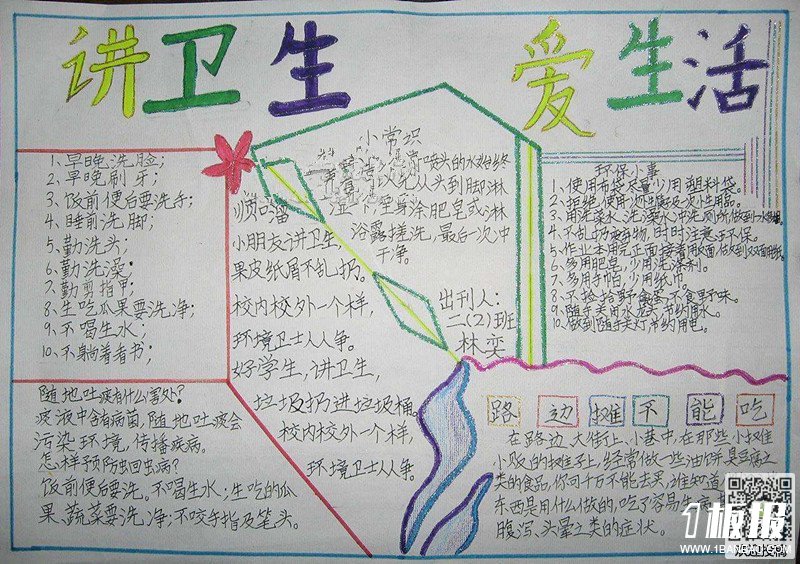 讲卫生 爱生活
1、早晚洗脸；
2、早晚刷牙；
3、饭前便后要洗手；
4、睡前洗脚；
5、勤洗头；
6、勤洗澡；
7、勤剪指甲；
8、生吃瓜果要洗净；
9、不喝生水；
10、不躺着看书；
随地吐痰有什么害处？
痰液中含有病菌，随地吐痰会
污染环境，传播疾病。
怎样预防蛔虫病？
饭前便后要洗。不喝生水；生吃的瓜
果、蔬菜要洗净；不咬手指及笔头。
小常识
喷头的水始终
以先从头到脚淋
湿一下，全身涂肥皂或淋
浴露搓洗，最后一次冲
干净。
顺口溜
小朋友讲卫生，
果皮纸屑不乱扔。
校内校外一个样，
环境卫士人人争。
好学生，讲卫生，
垃圾扔进垃圾桶。
校内校外一个样，
环境卫士人人争。
出刊人：
二（2）班
林奕
环保小事
1、使用布袋尽量少用塑料袋。
2、拒绝使用一次性用品。
3、用洗菜水、洗澡水冲洗厕所，做到一水多用。
4、不乱扔废弃物，时时注意环保。
5、作业本用完正面接着用反面，做到双面用纸。
6、多用肥皂，少用洗涤剂。
7、多用手帕，少用纸巾。
8、不捡拾野禽蛋，不食野味。
9、随手关闭水龙头节约用水。
10、做到随手关灯，节约用电。
路边摊不能吃
在路边、大街上、小巷中，在那些小摊
小贩的摊子上，经常做一些油饼、臭豆腐之
类的食品，你可千万不能去买，谁知道
东西是用什么做的，吃了容易生病
腹泻、头晕之类的症状。
1板报
WWW.1BANBAO.COM
欢迎投稿